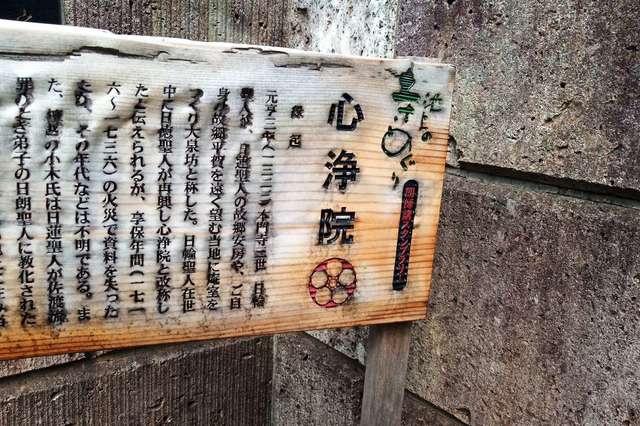 池上の
史跡めぐり
心浄院
縁起
元亨二(一三二二)本門寺三世 日輪
聖人が、日蓮聖人の故郷安房や、ご自
身の故郷平賀を遠く望む当地に庵室を
つくり大泉坊と称した。日輪聖人在世
中に日徳聖人が再興し心浄院と改称し
たと伝えられるが、享保年間(一七一
六〜一七三六)の火災で資料を失った
ため、その年代などは不明である。ま
た、檀越の小木氏は日蓮聖人が佐渡流
罪のとき弟子の日朗聖人に教化された